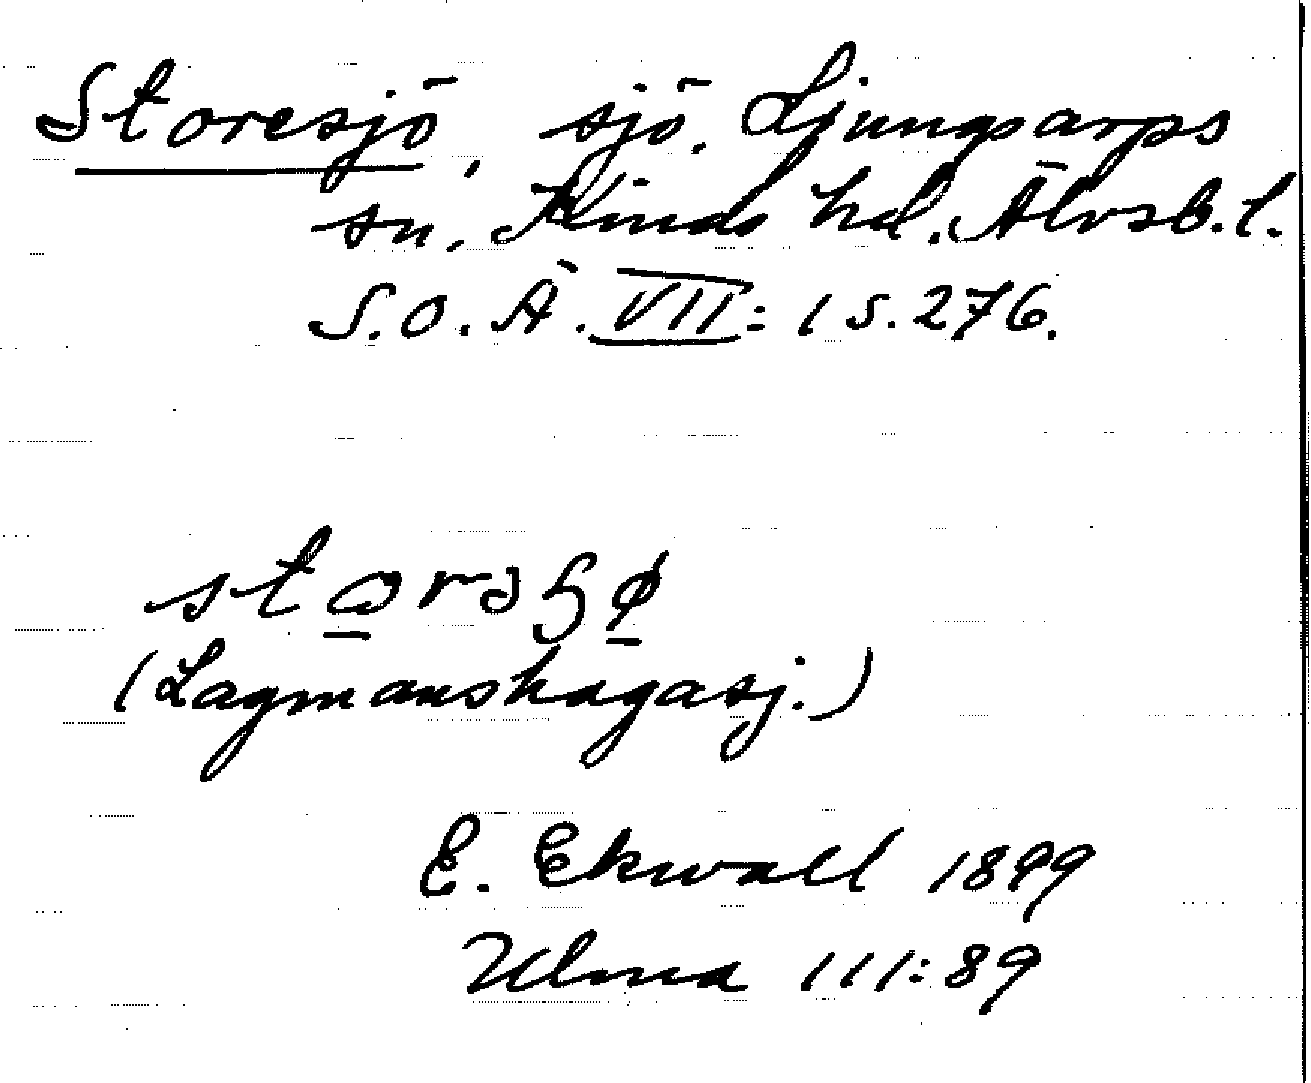 Storesjö, sjö. Ljungsarps
sn. Kinds hd. Älvsb. l.
S.O.Ä. VII: 1 s. 276.
(Lagmanshagasj.)
E. Ekwall 1899
Ulma 111:89